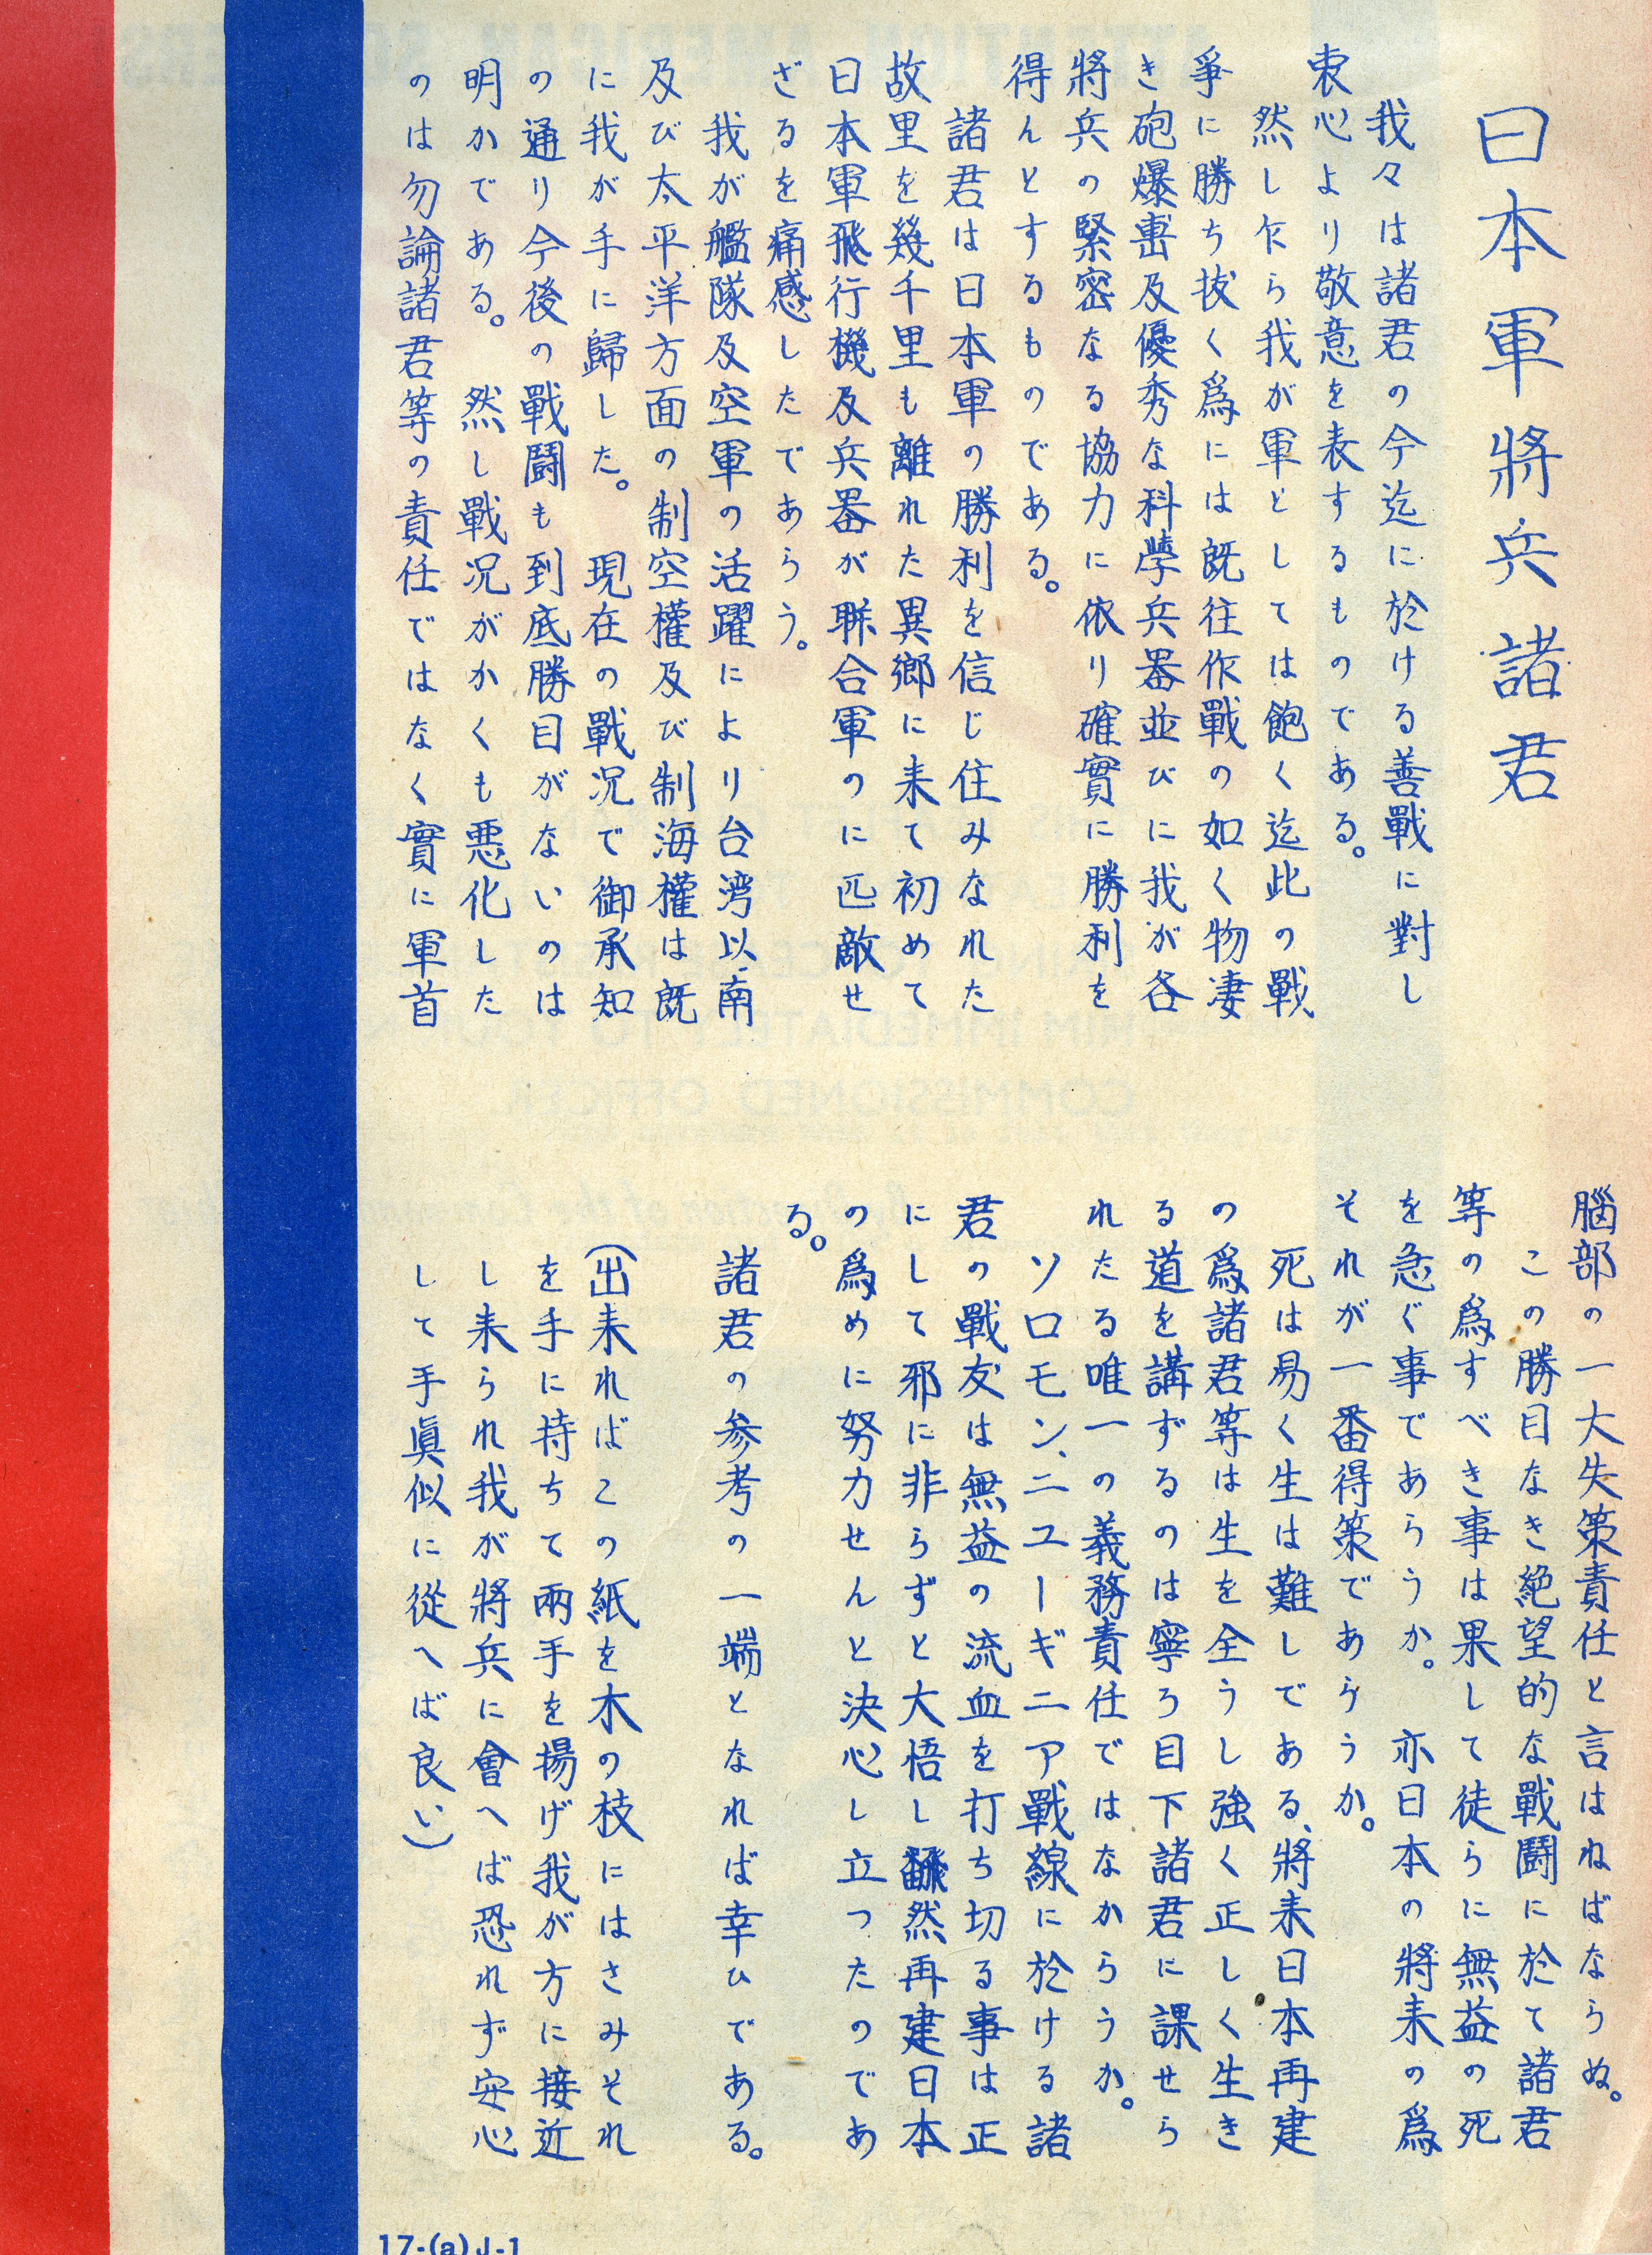 日本軍將兵諸君
我々は諸君の今迄に於ける善戰に對し
衷心より敬意を表するものである。
然し乍ら我が軍としては飽く迄此の戰
爭に勝ち抜く爲には既往作戰の如く物凄
き砲爆擊及優秀な科學兵器並びに我が各
將兵の緊密なる協力に依り確實に勝利を
得んとするものである。
諸君は日本軍の勝利を信じ住みなれた
故里を幾千里も離れた異鄉に来て初めて
日本軍飛行機及兵器が聯合軍のに匹敵せ
ざるを痛感したであらう。
我が艦隊及空軍の活躍により台湾以南
及び太平洋方面の制空權及び制海權は既
に我が手に歸した。 現在の戰況で御承知
の通り今後の戰鬪も到底勝目がないのは
明かである。 然し戰況がかくも悪化した
のは勿論諸君等の責任ではなく實に軍首
腦部の一大失策責任と言はねばならぬ。
この勝目なき絶望的な戰鬪に於て諸君
等の爲すべき事は果して徒らに無益の死
を急ぐ事であらうか。 亦日本の將来の爲
それが一番得策であらうか。
死は易く生は難しである、將来日本再建
の爲諸君等は生を全うし強く正しく生き
る道を講ずるのは寧ろ目下諸君に課せら
れたる唯一の義務責任ではなからうか。
ソロモン、ニューギニア戰線に於ける諸
君の戰友は無益の流血を打ち切る事は正
にして邪に非らずと大悟し翻然再建日本
の爲めに努力せんと決心し立つたのであ
る。
諸君の参考の一端となれば幸ひである。
(出来ればこの紙を木の枝にはさみそれ
を手に持ちて兩手を揚げ我が方に接近
し来られ我が將兵に會へば恐れず安心
して手眞似に從へば良い)
17-(a)J-1